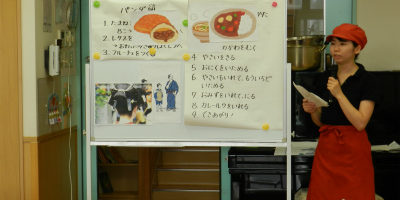 パンダ組
1. たまねぎ
2. レタスを
3. フルーチェをつくる
かわをむく
4 やさいをきる
5 おにくをいためる
6 やさいもいれて、もういちど
いためる
7 おみずをいれて、にる
8 カレールウをいれる
9 できあがり!